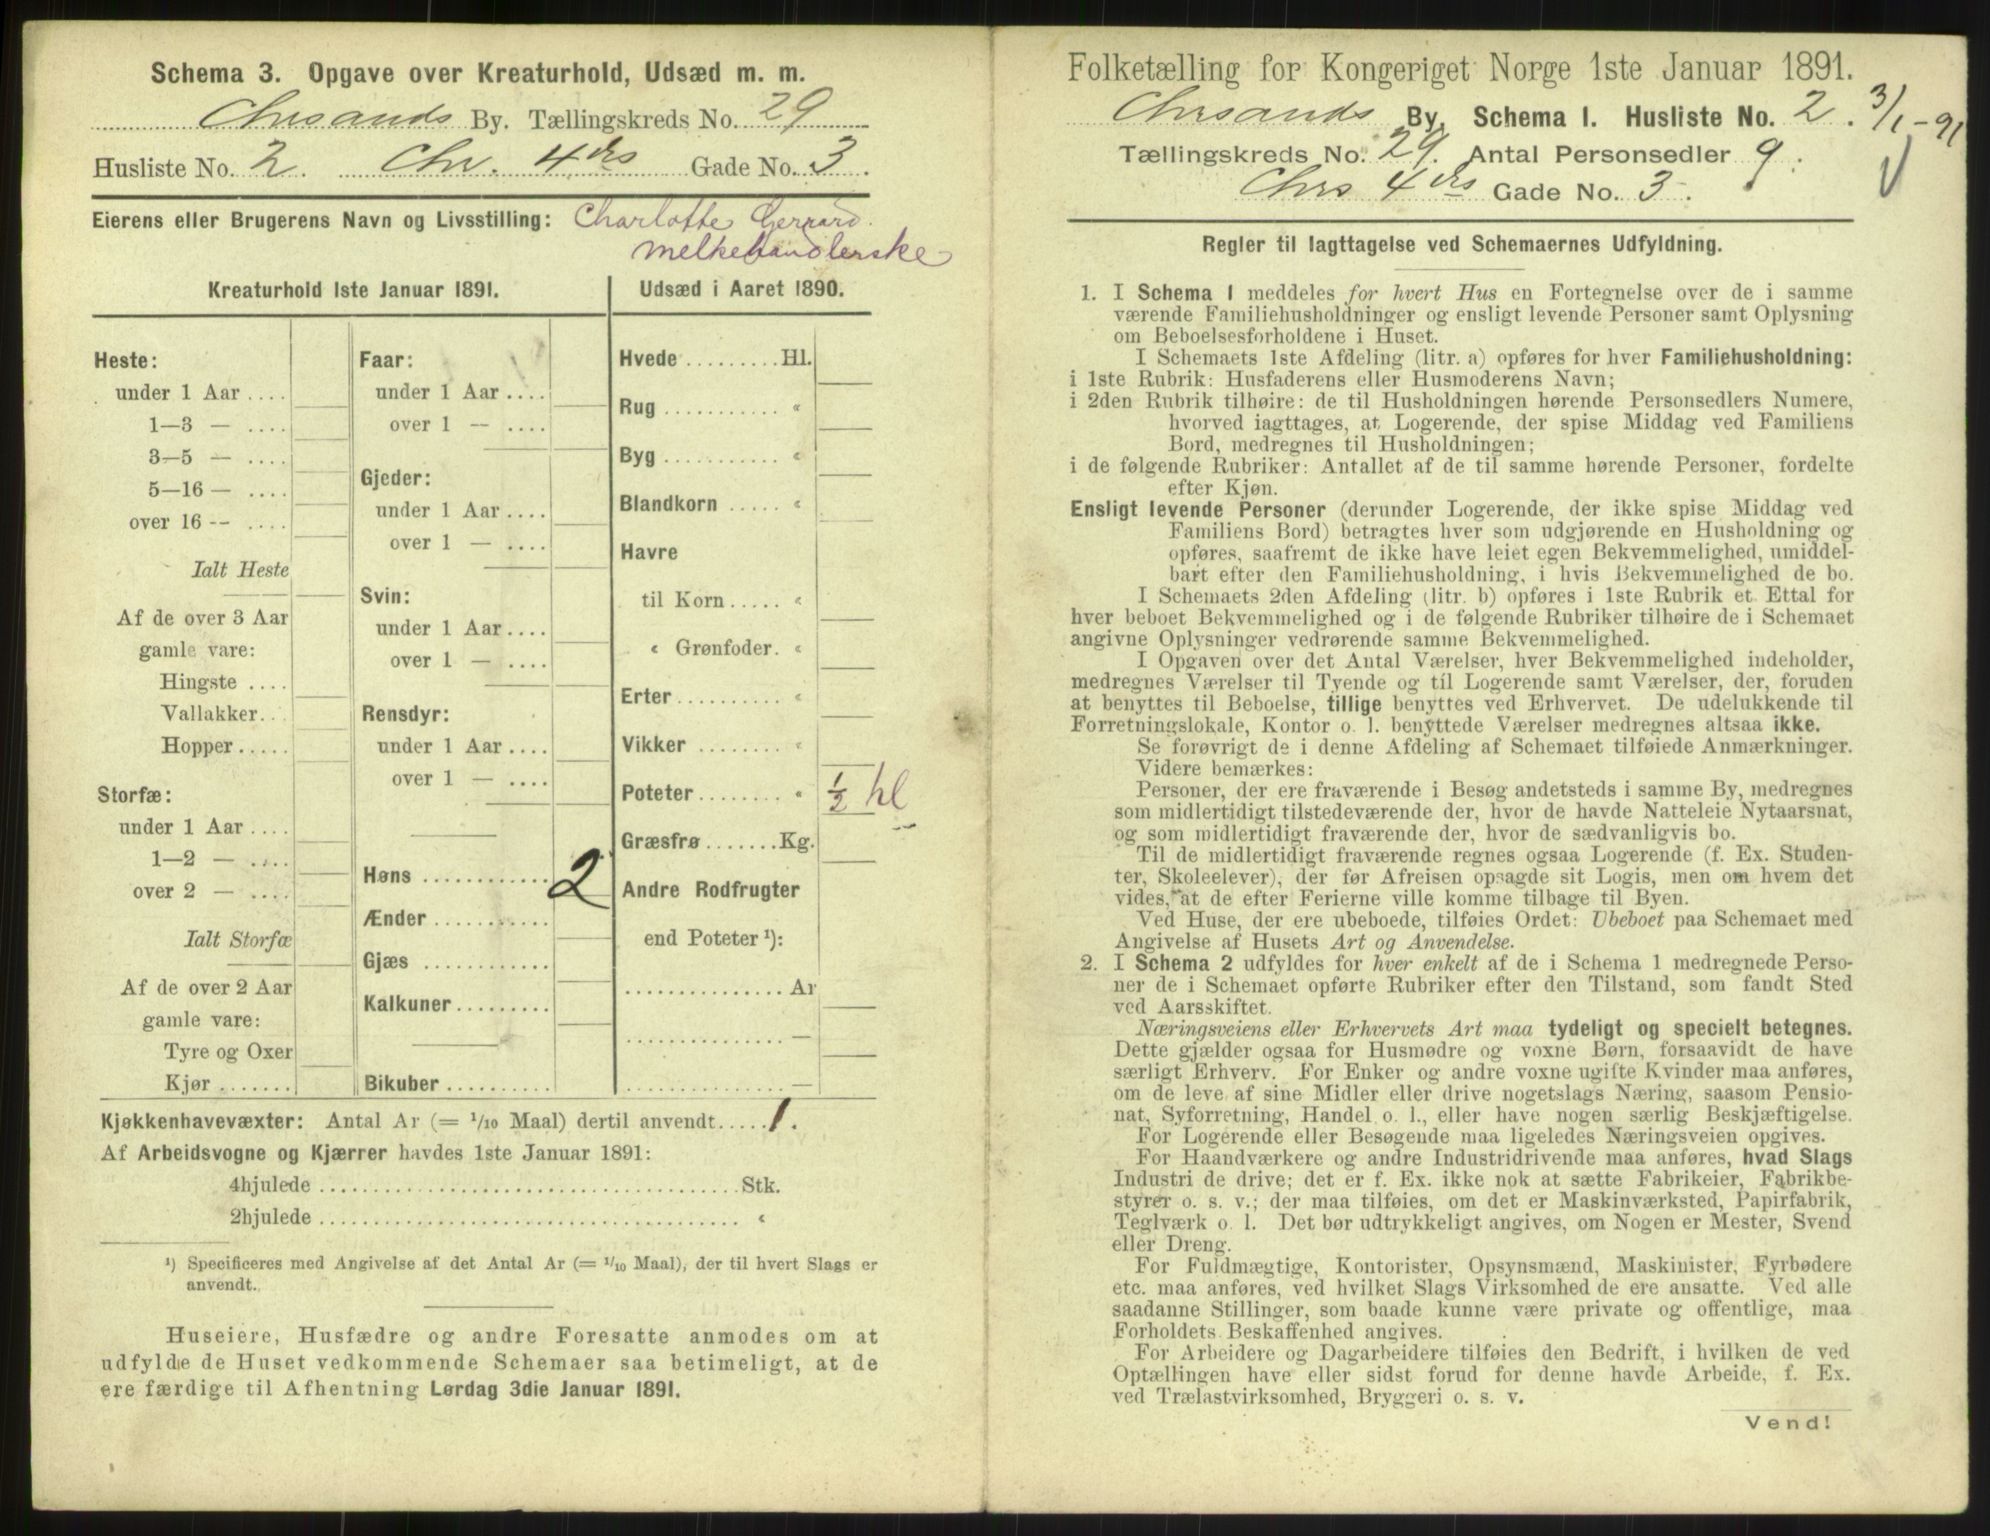 Schema 3. Opgave over Kreaturhold, Udsæd m. m.
Chrsands By. Tællingskreds No. 29
Husliste No. 2. Chr. 4des Gade No. 3.
Eierens eller Brugerens Navn og Livsstilling: Charlotte Gerrard.
Melkehandlerske
Kreaturhold 1ste Januar 1891.
Heste:
under 1 Aar ....
1—3 — ....
3—5 — ....
5—16 — ....
over 16 -- ....
Ialt Heste
Af de over 3 Aar
gamle vare:
Hingste ....
Vallakker...
Hopper.....
Storfæ:
under 1 Aar ....
1—2 — ....
over 2 — ....
Ialt Storfæ
Af de over 2 Aar
gamle vare:
Tyre og Oxer
Kjør .......
Faar:
under 1 Aar ....
over 1 — ....
Gjeder:
under 1 Aar ....
over 1 — ....
Svin:
under 1 Aar ....
over 1 — ....
Rensdyr:
under 1 Aar ....
over 1 — ....
Høns ............ 2
Ænder ...........
Gjæs ............
Kalkuner .........
Bikuber ..........
Udsæd i Aaret 1890.
Hvede ......... Hl.
Rug ........... «
Byg ........... «
Blandkorn ..... «
Havre
til Korn ..... «
« Grønfoder. «
Erter .......... «
Vikker ......... «
Poteter ........ « ½ hl
Græsfrø ....... Kg.
Andre Rodfrugter
end Poteter ¹):
............... Ar
............... —
............... —
Kjøkkenhavevæxter: Antal Ar (= 1/10 Maal) dertil anvendt ..... 1.
Af Arbeidsvogne og Kjærrer havdes 1ste Januar 1891:
4hjulede ........................................ Stk.
2hjulede ........................................ «
¹) Specificeres med Angivelse af det Antal Ar (= 1/10 Maal), der til hvert Slags er
anvendt.
Huseiere, Husfædre og andre Foresatte anmodes om at
udfylde de Huset vedkommende Schemaer saa betimeligt, at de
ere færdige til Afhentning Lørdag 3die Januar 1891.
Folketælling for Kongeriget Norge 1ste Januar 1891.
Chrsands By. Schema I. Husliste No. 2. 3/1-91
Tællingskreds No. 29. Antal Personsedler 9.
Chrs 4des Gade No. 3.
Regler til Iagttagelse ved Schemaernes Udfyldning.
1. I Schema I meddeles for hvert Hus en Fortegnelse over de i samme
værende Familiehusholdninger og ensligt levende Personer samt Oplysning
om Beboelsesforholdene i Huset.
I Schemaets 1ste Afdeling (litr. a) opføres for hver Familiehusholdning:
i 1ste Rubrik: Husfaderens eller Husmoderens Navn;
i 2den Rubrik tilhøire: de til Husholdningen hørende Personsedlers Numere,
hvorved iagttages, at Logerende, der spise Middag ved Familiens
Bord, medregnes til Husholdningen;
i de følgende Rubriker: Antallet af de til samme hørende Personer, fordelte
efter Kjøn.
Ensligt levende Personer (derunder Logerende, der ikke spise Middag ved
Familiens Bord) betragtes hver som udgjørende en Husholdning og
opføres, saafremt de ikke have leiet egen Bekvemmelighed, umiddel-
bart efter den Familiehusholdning, i hvis Bekvemmelighed de bo.
I Schemaets 2den Afdeling (litr. b) opføres i 1ste Rubrik et Ettal for
hver beboet Bekvemmelighed og i de følgende Rubriker tilhøire de i Schemaet
angivne Oplysninger vedrørende samme Bekvemmelighed.
I Opgaven over det Antal Værelser, hver Bekvemmelighed indeholder,
medregnes Værelser til Tyende og til Logerende samt Værelser, der, foruden
at benyttes til Beboelse, tillige benyttes ved Erhvervet. De udelukkende til
Forretningslokale, Kontor o. l. benyttede Værelser medregnes altsaa ikke.
Se forøvrigt de i denne Afdeling af Schemaet tilføiede Anmærkninger.
Videre bemærkes:
Personer, der ere fraværende i Besøg andetsteds i samme By, medregnes
som midlertidigt tilstedeværende der, hvor de havde Natteleie Nytaarsnat,
og som midlertidigt fraværende der, hvor de sædvanligvis bo.
Til de midlertidigt fraværende regnes ogsaa Logerende (f. Ex. Studen-
ter, Skoleelever), der før Afreisen opsagde sit Logis, men om hvem det
vides, at de efter Ferierne ville komme tilbage til Byen.
Ved Huse, der ere ubeboede, tilføies Ordet: Ubeboet paa Schemaet med
Angivelse af Husets Art og Anvendelse.
2. I Schema 2 udfyldes for hver enkelt af de i Schema 1 medregnede Perso-
ner de i Schemaet opførte Rubriker efter den Tilstand, som fandt Sted
ved Aarsskiftet.
Næringsveiens eller Erhvervets Art maa tydeligt og specielt betegnes.
Dette gjælder ogsaa for Husmødre og voxne Børn, forsaavidt de have
særligt Erhverv. For Enker og andre voxne ugifte Kvinder maa anføres,
om de leve af sine Midler eller drive nogetslags Næring, saasom Pensio-
nat, Syforretning, Handel o. l., eller have nogen særlig Beskjæftigelse.
For Logerende eller Besøgende maa ligeledes Næringsveien opgives.
For Haandværkere og andre Industridrivende maa anføres, hvad Slags
Industri de drive; det er f. Ex. ikke nok at sætte Fabrikeier, Fabrikbe-
styrer o. s. v.; der maa tilføies, om det er Maskinværksted, Papirfabrik,
Teglværk o. l. Det bør udtrykkeligt angives, om Nogen er Mester, Svend
eller Dreng.
For Fuldmægtige, Kontorister, Opsynsmænd, Maskinister, Fyrbødere
etc. maa anføres, ved hvilket Slags Virksomhed de ere ansatte. Ved alle
saadanne Stillinger, som baade kunne være private og offentlige, maa
Forholdets Beskaffenhed angives.
For Arbeidere og Dagarbeidere tilføies den Bedrift, i hvilken de ved
Optællingen have eller sidst forud for denne havde Arbeide, f. Ex.
ved Trælastvirksomhed, Bryggeri o. s. v.
Vend!